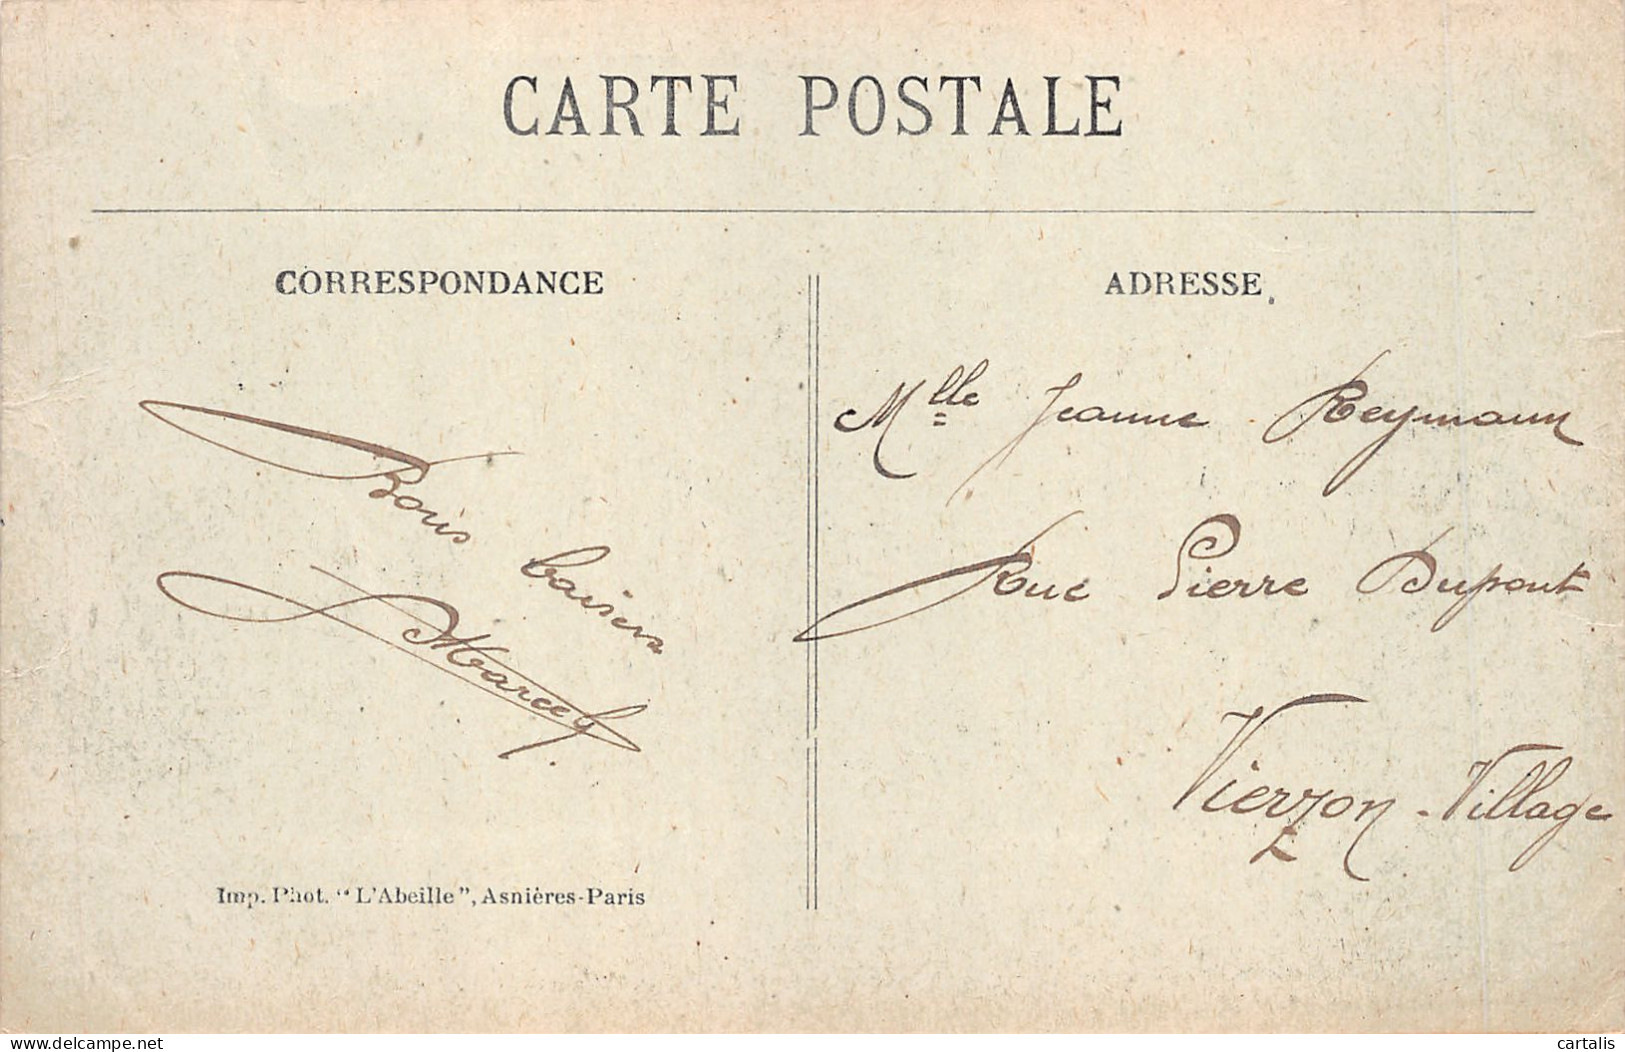 CARTE POSTALE
CORRESPONDANCE
Bons baisers
Marcel
Imp. Phot. "L'Abeille", Asnières-Paris
ADRESSE
Mlle Jeanne Reymann
Rue Pierre Dupont
Vierzon-Village
www.delcampe.net
cartalis